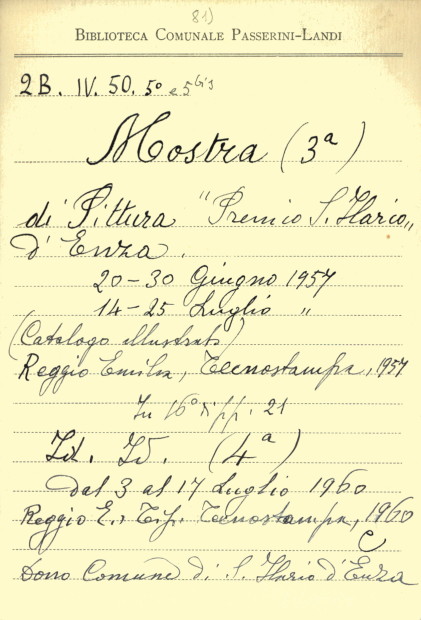 81)
BIBLIOTECA COMUNALE PASSERINI-LANDI
2B. IV. 50. 5º e 5
Mostra (3ª)
di Pittura "Premio S. Ilario„
d'Enza.
20-30 Giugno 1957
14-25 Luglio „
(Catalogo illustrato)
Reggio Emilia, Tecnostampa, 1957
In 16º di pp. 21
Id. Id. (4ª)
dal 3 al 17 Luglio 1960
Reggio E., Tip. Tecnostampa, 1960
Dono Comune di S. Ilario d'Enza